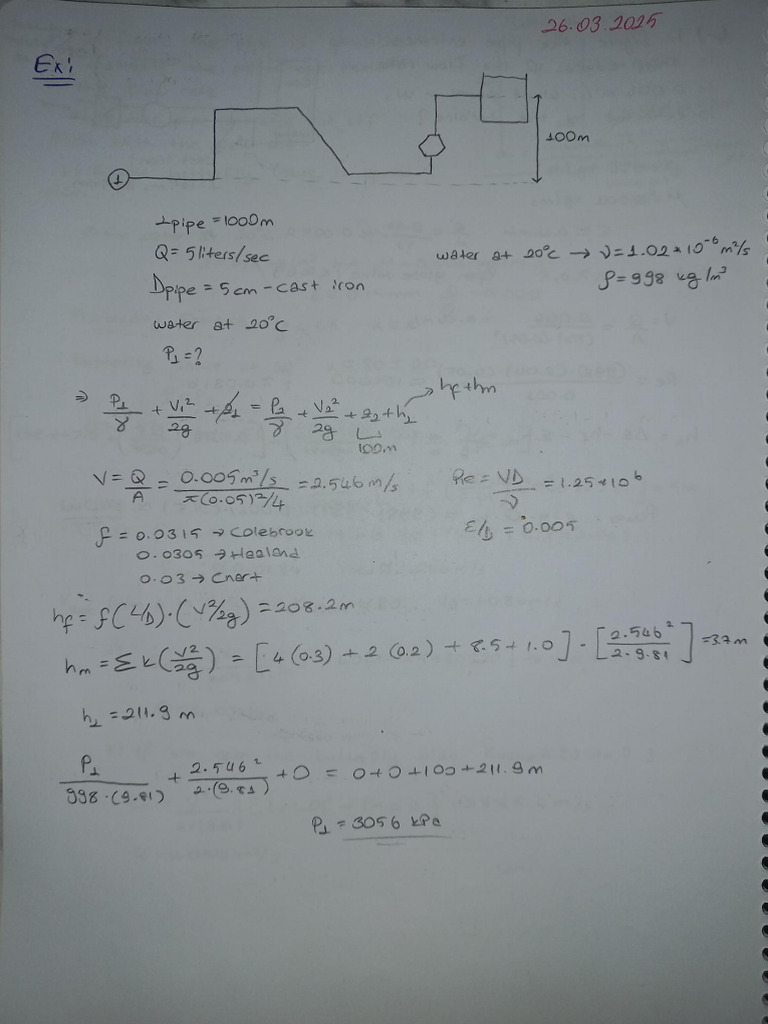 26.03.2025
Ex:
100m
1
Lpipe = 1000m
Q = 5 liters/sec
water at 20°C → ν = 1.02 * 10⁻⁶ m²/s
Dpipe = 5 cm - cast iron
ρ = 998 kg/m³
water at 20°C
P₁ = ?
hf + hm
⇒ P₁/γ + V₁²/2g + z₁ = P₂/γ + V₂²/2g + z₂ + hL
100m
V = Q/A = 0.005 m³/s / π(0.05)²/4 = 2.546 m/s
Re = VD/ν = 1.25 * 10⁶
ε/D = 0.005
f = 0.0315 → Colebrook
0.0305 → Haaland
0.03 → Chart
hf = f(L/D) · (V²/2g) = 208.2m
hm = Σ k(V²/2g) = [4(0.3) + 2(0.2) + 8.5 + 1.0] · [2.546²/2·9.81] = 3.7 m
hL = 211.9 m
P₁/998·(9.81) + 2.546²/2·(9.81) + 0 = 0+0+100+211.9m
P₁ = 3056 kPa